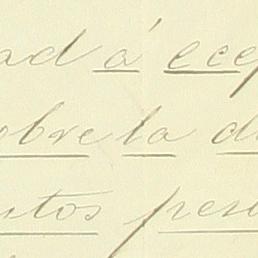 ad á ecep
obre la d
ntos pers